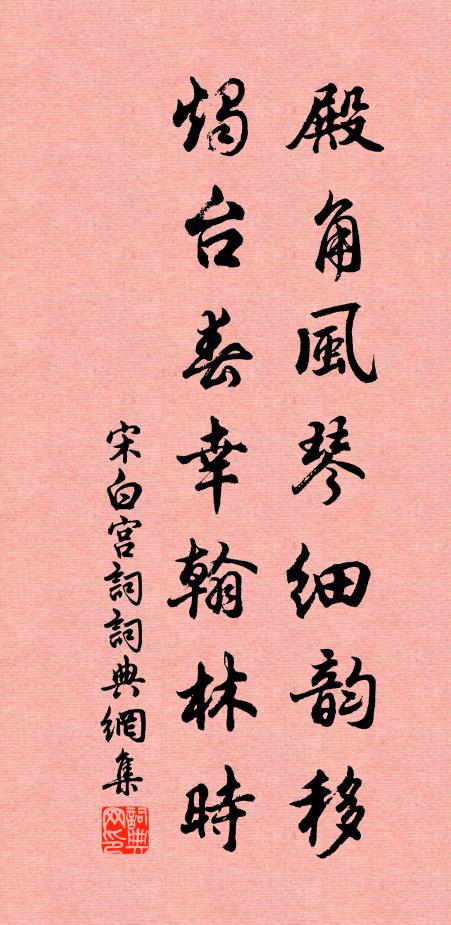 殿角風琴細韵移
燭台春幸翰林時
宋白宫詞詞典網集
詞典网印